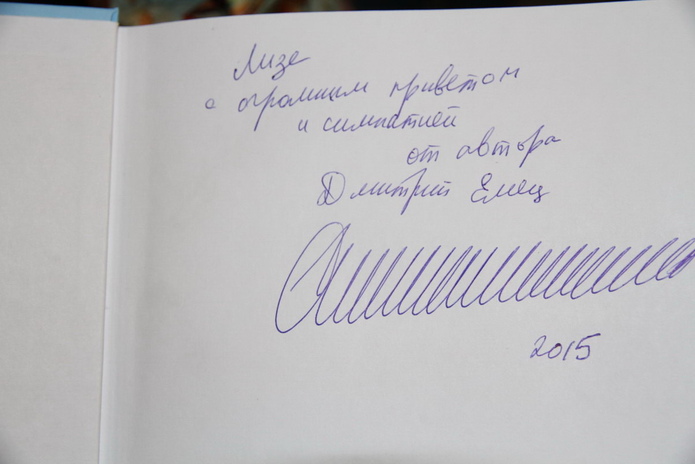 Лизе
с огромным приветом
и симпатией
от автора
Дмитрий Емец
2015